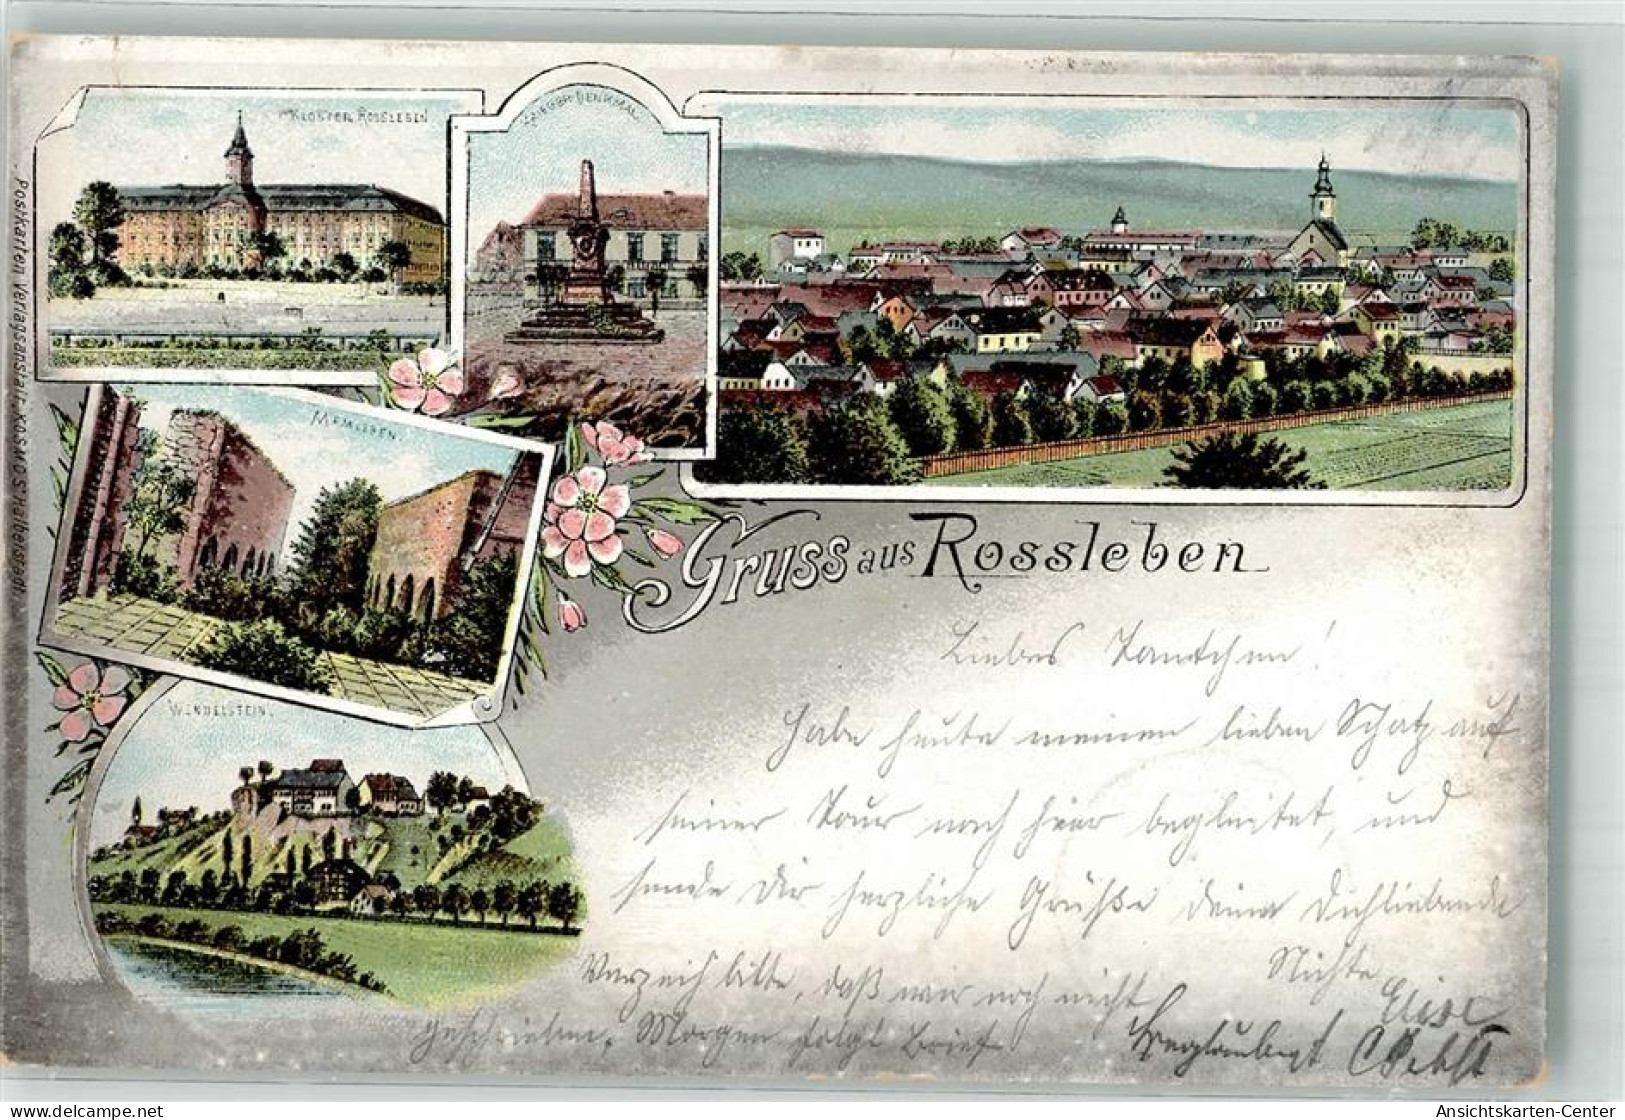 KLOSTER ROSSLEBEN
KRIEGER-DENKMAL
MEMLEBEN
WENDELSTEIN.
Postkarten Verlagsanstalt „KOSMOS“ Halberstadt.
Gruss aus Rossleben
Liebes Tantchen!
Habe heute meinen lieben Schatz auf
seiner Tour nach hier begleitet, und
sende Dir herzliche Grüße deine Dichliebende
Nichte
Elise
Verzeih bitte, daß wir noch nicht
geschrieben, Morgen folgt Brief
Beglaubigt
Ansichtskarten-Center